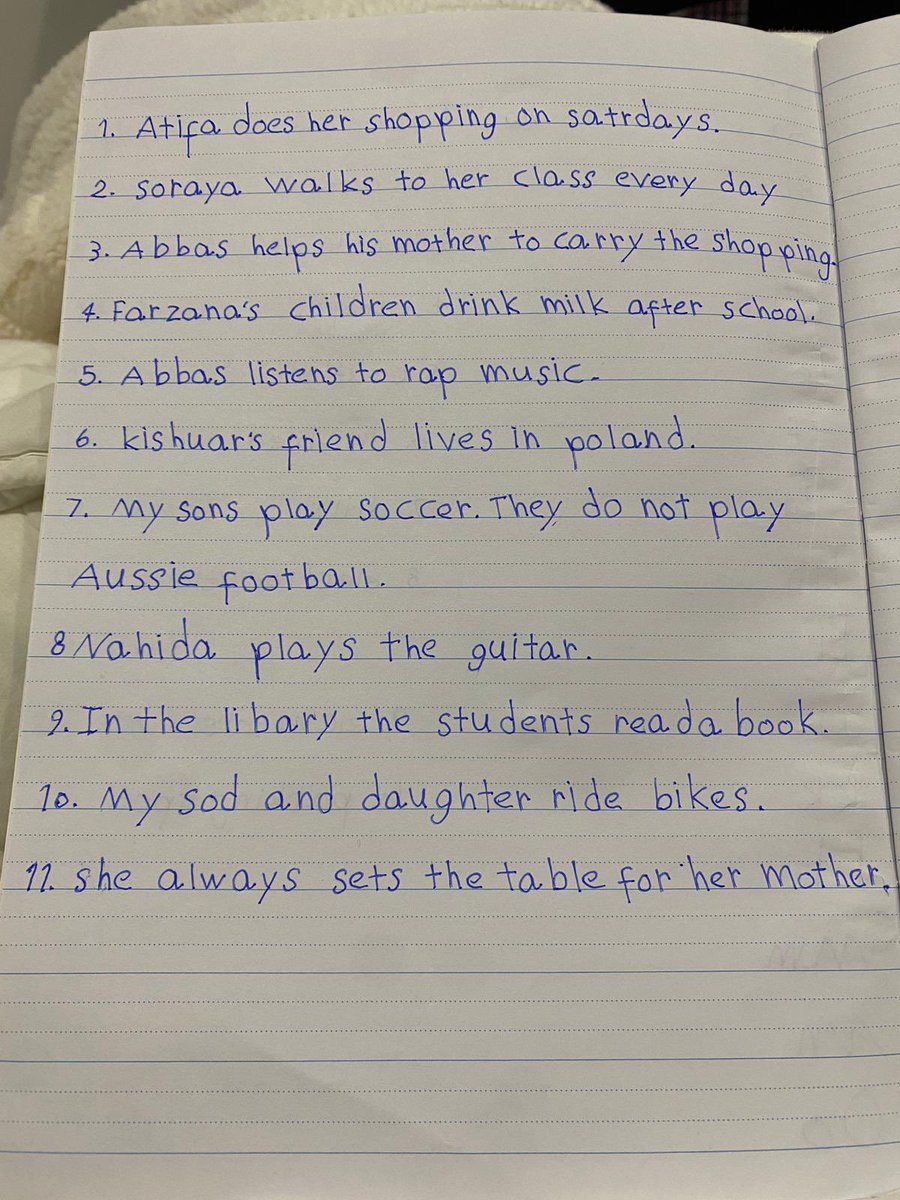 1. Atifa does her shopping on satrdays.
2. soraya walks to her class every day
3. Abbas helps his mother to carry the shopping.
4. Farzana's children drink milk after school.
5. Abbas listens to rap music.
6. kishuar's friend lives in poland.
7. My sons play soccer. They do not play
Aussie football.
8 Nahida plays the guitar.
9. In the libary the students read a book.
10. My sod and daughter ride bikes.
11. she always sets the table for her mother.